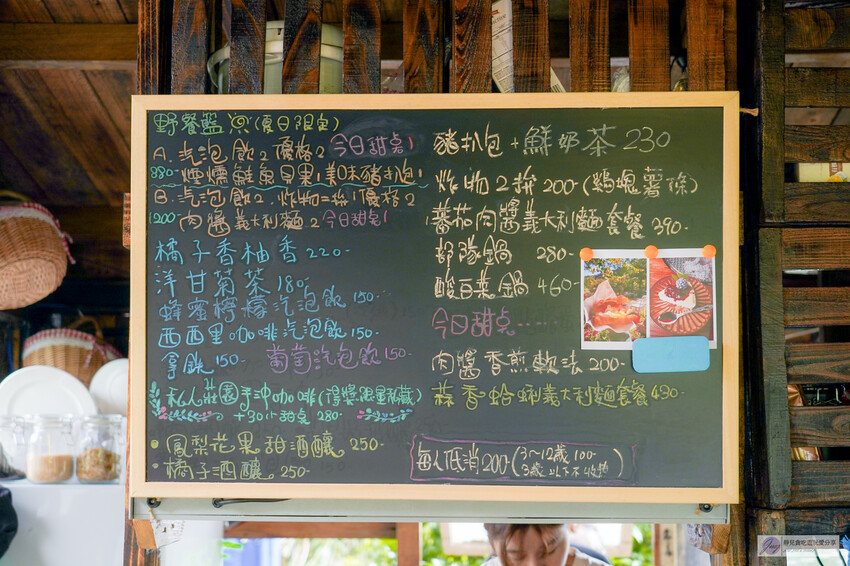 野餐籃 (夏日限定)
A. 汽泡飲2 優格2 今日甜点1
880- 煙燻鮭魚貝果1 美味豬扒包1
B. 汽泡飲2. 炸物二拚1 優格2
1200 肉醬義大利麵2 今日甜点1
橘子香柚香 220-
洋甘菊茶 180-
蜂蜜檸檬汽泡飲 150-
西西里咖啡汽泡飲 150-
拿鐵 150- 葡萄汽泡飲 150-
私人莊園手沖咖啡
+30 小甜点 280-
鳳梨花果甜酒釀 250-
橘子酒釀 250-
豬扒包 + 鮮奶茶 230
炸物2拚 200-(鷄塊薯條)
蕃茄肉醬義大利麵套餐 390-
部隊鍋 280-
酸白菜鍋 460-
今日甜点
肉醬香煎軟法 200-
蒜香蛤蜊義大利麵套餐 430-
每人低消200-(3~12歲 100-
3歲以下不收費)